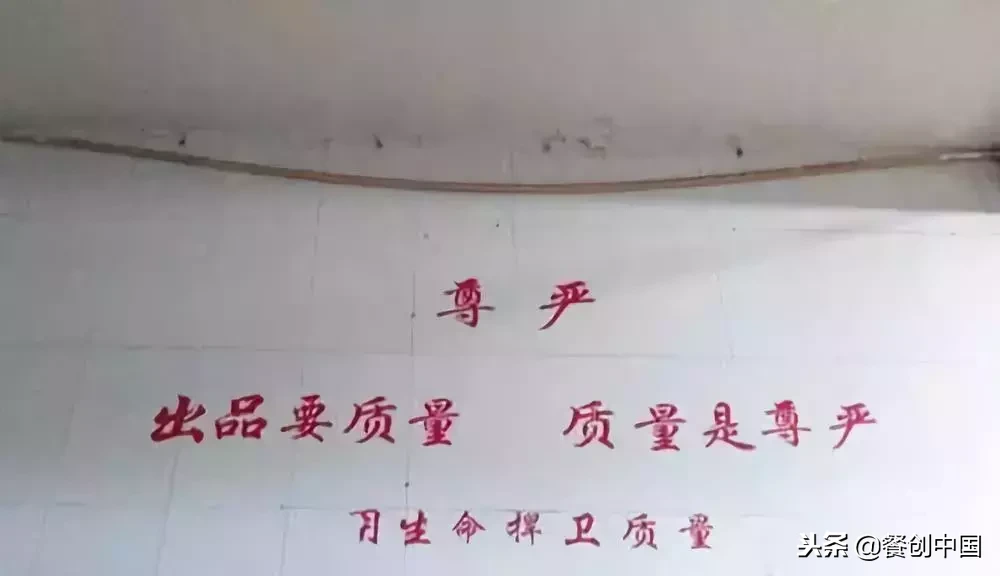 尊严
出品要质量 质量是尊严
月生命捍卫质量
头条 @餐创中国